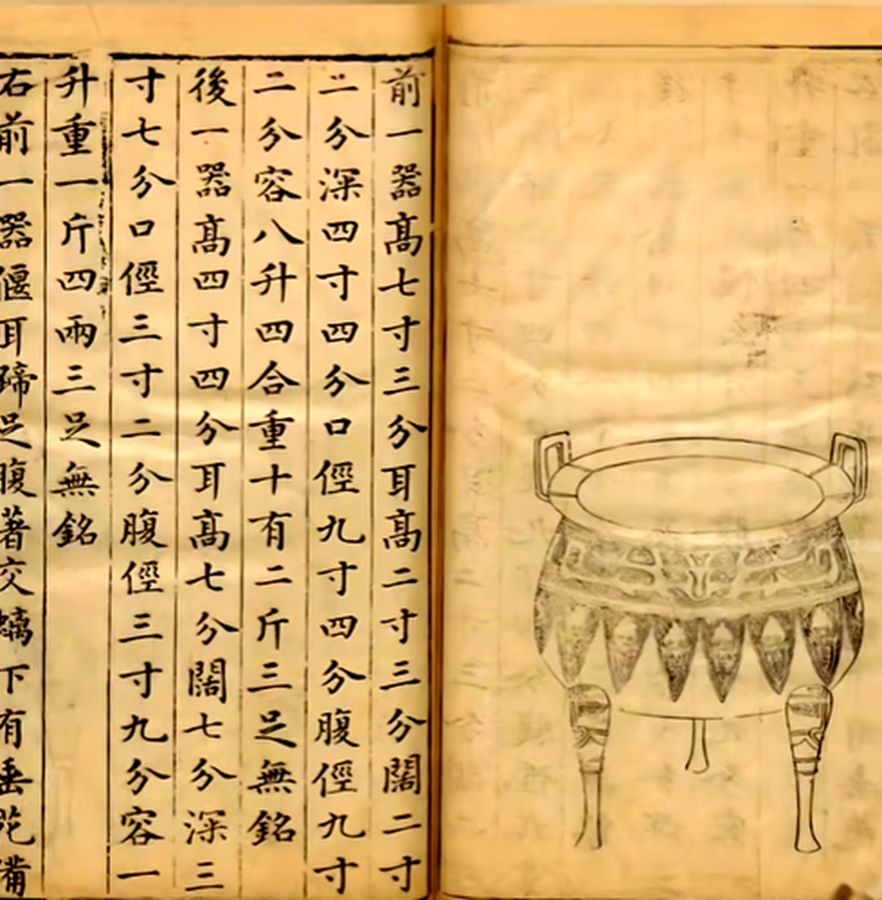 前一器高七寸三分耳高二寸三分闊二寸
二分深四寸四分口徑九寸四分腹徑九寸
二分容八升四合重十有二斤三足無銘
後一器高四寸四分耳高七分闊七分深三
寸七分口徑三寸二分腹徑三寸九分容一
升重一斤四兩三足無銘
右前一器偃耳蹄足腹著交螭下有垂花備